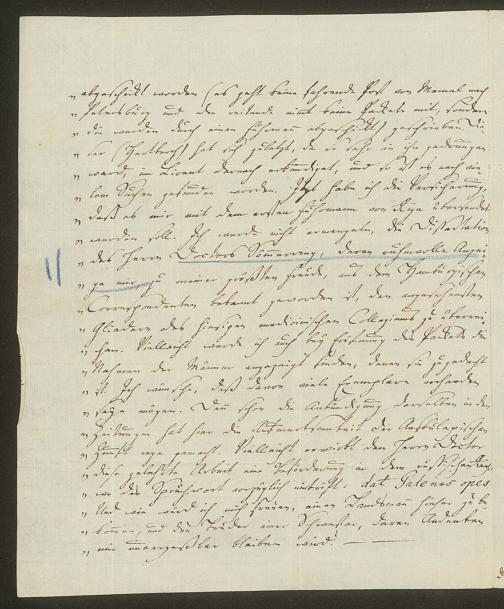 " abgeschickt worden (es geht keine fahrende Post von Memel nach
" Petersburg und die reitende nimt keine Packete mit, sondern
" die werden durch einen Fuhrmann abgeschickt) geschrieben. Die-
" ser (Hartknoch) hat sich zuletzt, da so sehr in ihn gedrungen
" ward, in Livland darnach erkundiget, und so ist es nach vie-
" lem Suchen gefunden worden. Jetzt habe ich die Versicherung,
" daß es mir mit dem ersten Fuhrmann von Riga übersendet
" werden soll. Ich werde nicht ermangeln, die Dissertation
" des Herrn Doctors Sömmerring, deren ruhmvolle Anzei-
" ge mir zu meiner größten Freude, aus dem Hamburgischen
" Correspondenten bekannt geworden ist, den angesehensten
" Gliedern des hiesigen medicinischen Collegiums zu überrei-
" chen. Vielleicht werde ich auch bey Eröfnung des Packets die
" Nahmen der Männer angezeigt finden, denen sie zugedacht
" ist. Ich wünsche, daß davon viele Exemplare vorhanden
" seyn mögen. Denn schon die Ankündigung derselben in den
" Zeitungen hat hier die Aufmerksamkeit der Aesculapischen
" Zunft rege gemacht. Vielleicht erwirbt dem Herrn Doctor
" diese gelehrte Arbeit eine Beförderung in dem russischen
" wo das Sprüchwort vorzüglich eintrift: dat Galenus opes
" Und wie würde ich mich freuen, einen Landsmann hierher zu be-
" kommen, und den Bruder einer Schwester, deren Andenken
" mir unvergeßlich bleiben wird!